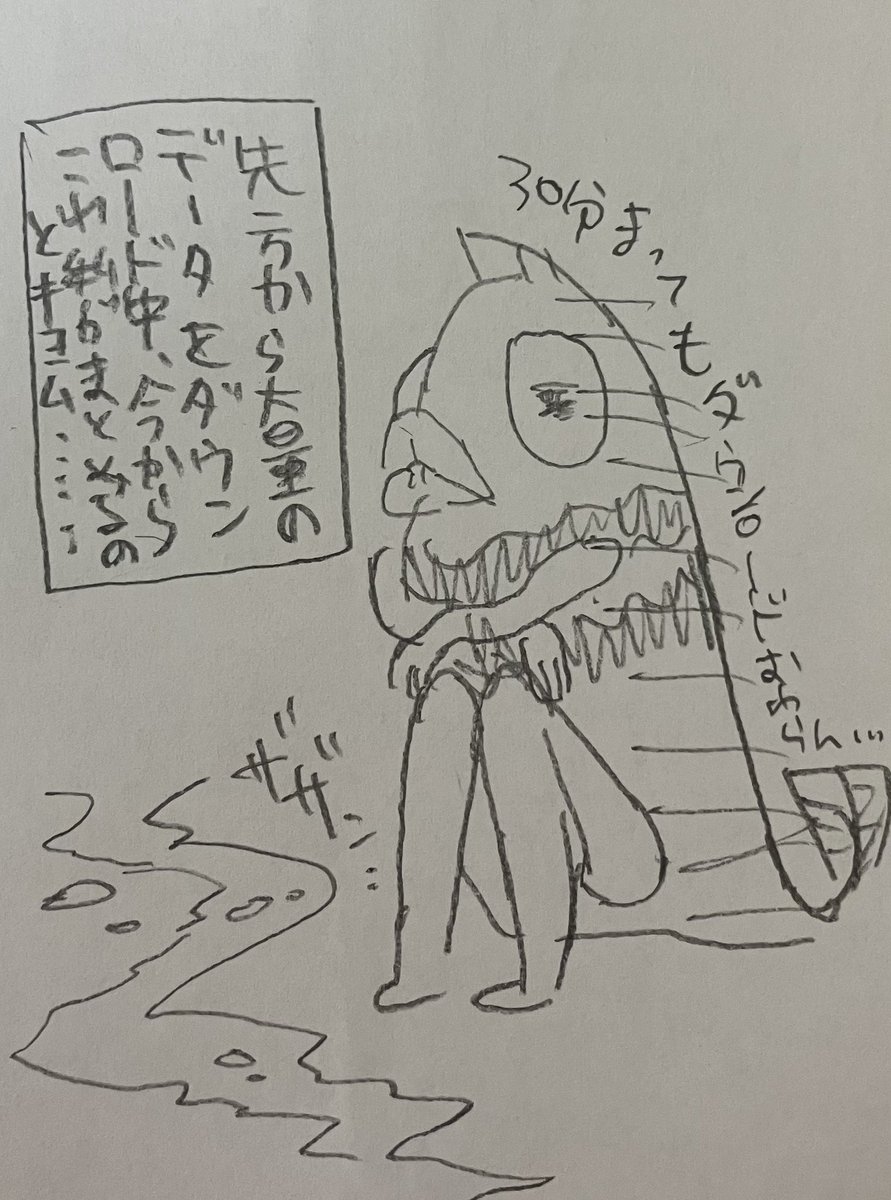 30分まってもダウンロードおわらん…
先方から大量の
データをダウン
ロード中、今から
これ私がまとめるの
とキョム……
ザザン…